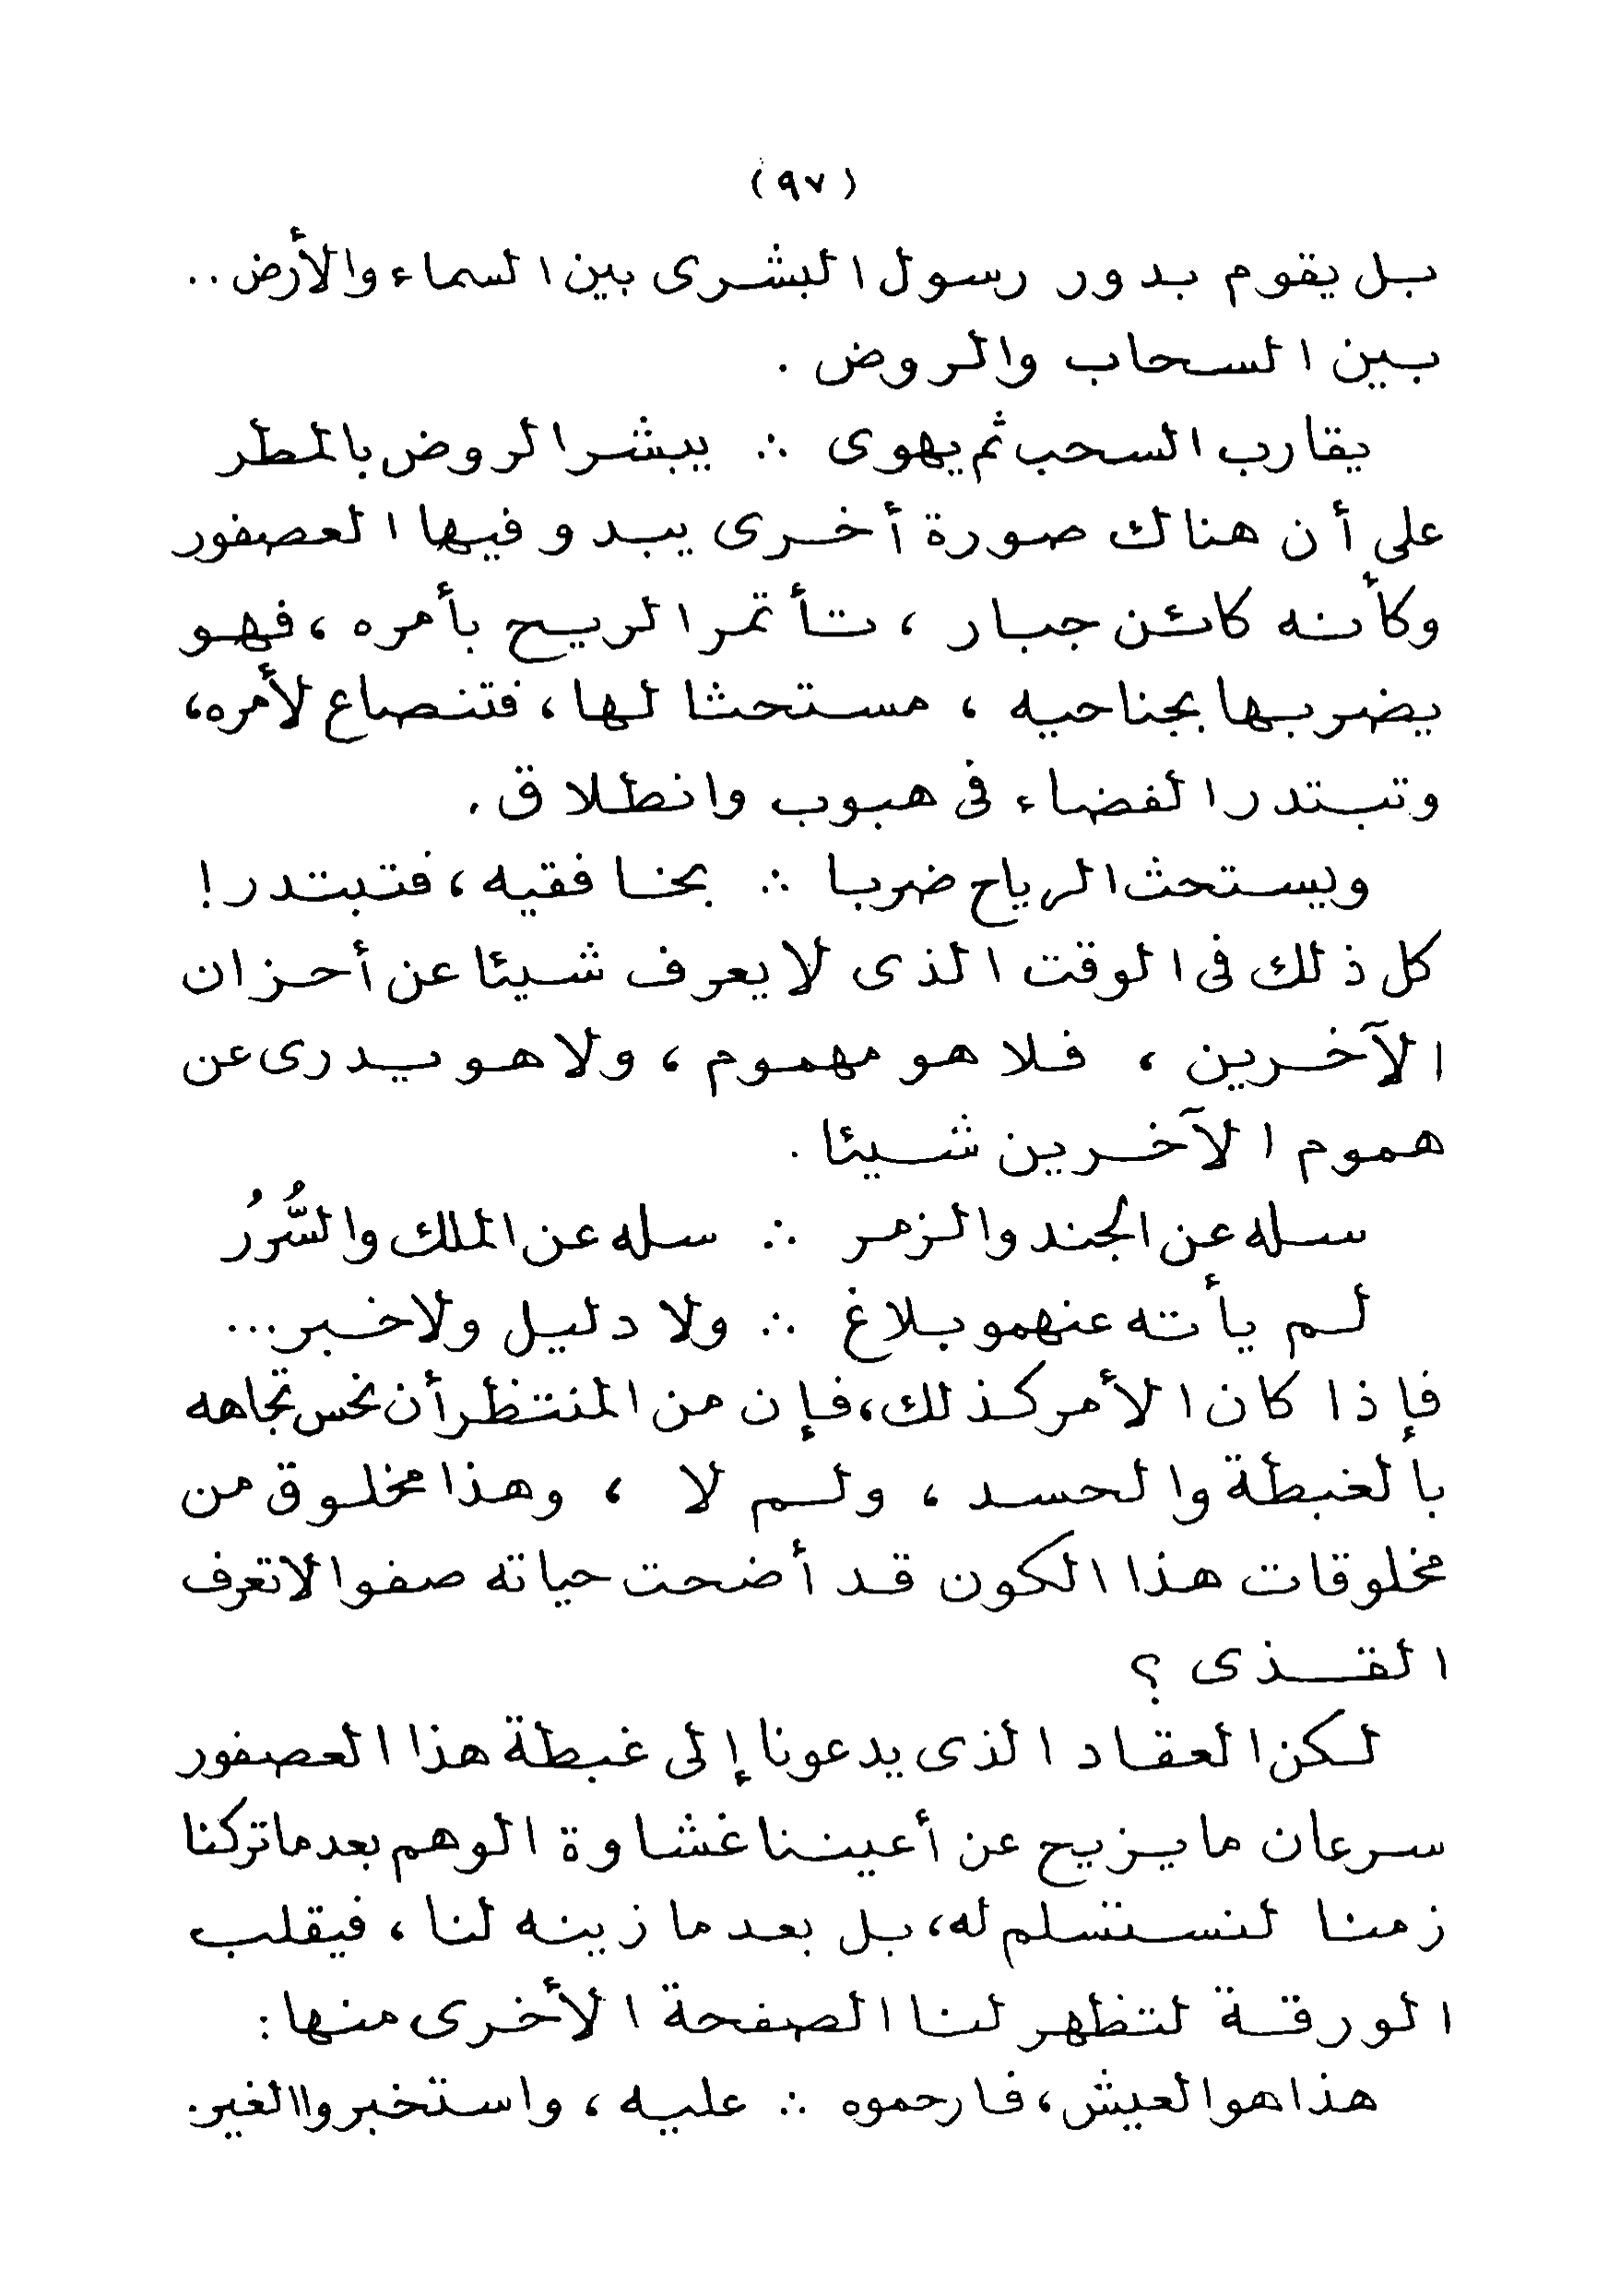 (٩٧)
بل يقوم بدور رسول البشرى بين السماء والأرض..
بين السحاب والروض .
يقارب السحب ثم يهوى ∴ يبشر الروض بالمطر
على أن هناك صورة أخرى يبدو فيها العصفور
وكأنه كائن جبار ، تأتمر الريح بأمره ، فهو
يضربها بجناحيه ، مستحثا لها ، فتنصاع لأمره،
وتبتدر الفضاء فى هبوب وانطلاق .
ويستحث الرياح ضربا ∴ بخافقيه ، فتبتدر !
كل ذلك فى الوقت الذى لا يعرف شيئا عن أحزان
الآخرين ، فلا هو مهموم ، ولا هو يدرى عن
هموم الآخرين شيئا .
سله عن الجند والزمر ∴ سله عن الملك والسُّرُر
لم يأته عنهمو بلاغ ∴ ولا دليل ولا خبر...
فإذا كان الأمر كذلك، فإن من المنتظر أن نحس تجاهه
بالغبطة والحسد ، ولم لا ، وهذا مخلوق من
مخلوقات هذا الكون قد أضحت حياته صفوا لا تعرف
القذى ؟
لكن العقاد الذى يدعونا إلى غبطة هذا العصفور
سرعان ما يزيح عن أعيننا غشاوة الوهم بعد ما تركنا
زمنا لنستسلم له، بل بعد ما زينه لنا ، فيقلب
الورقة لتظهر لنا الصفحة الأخرى منها :
هذا هو العيش ، فارحموه ∴ عليه ، واستخبروا الغير.